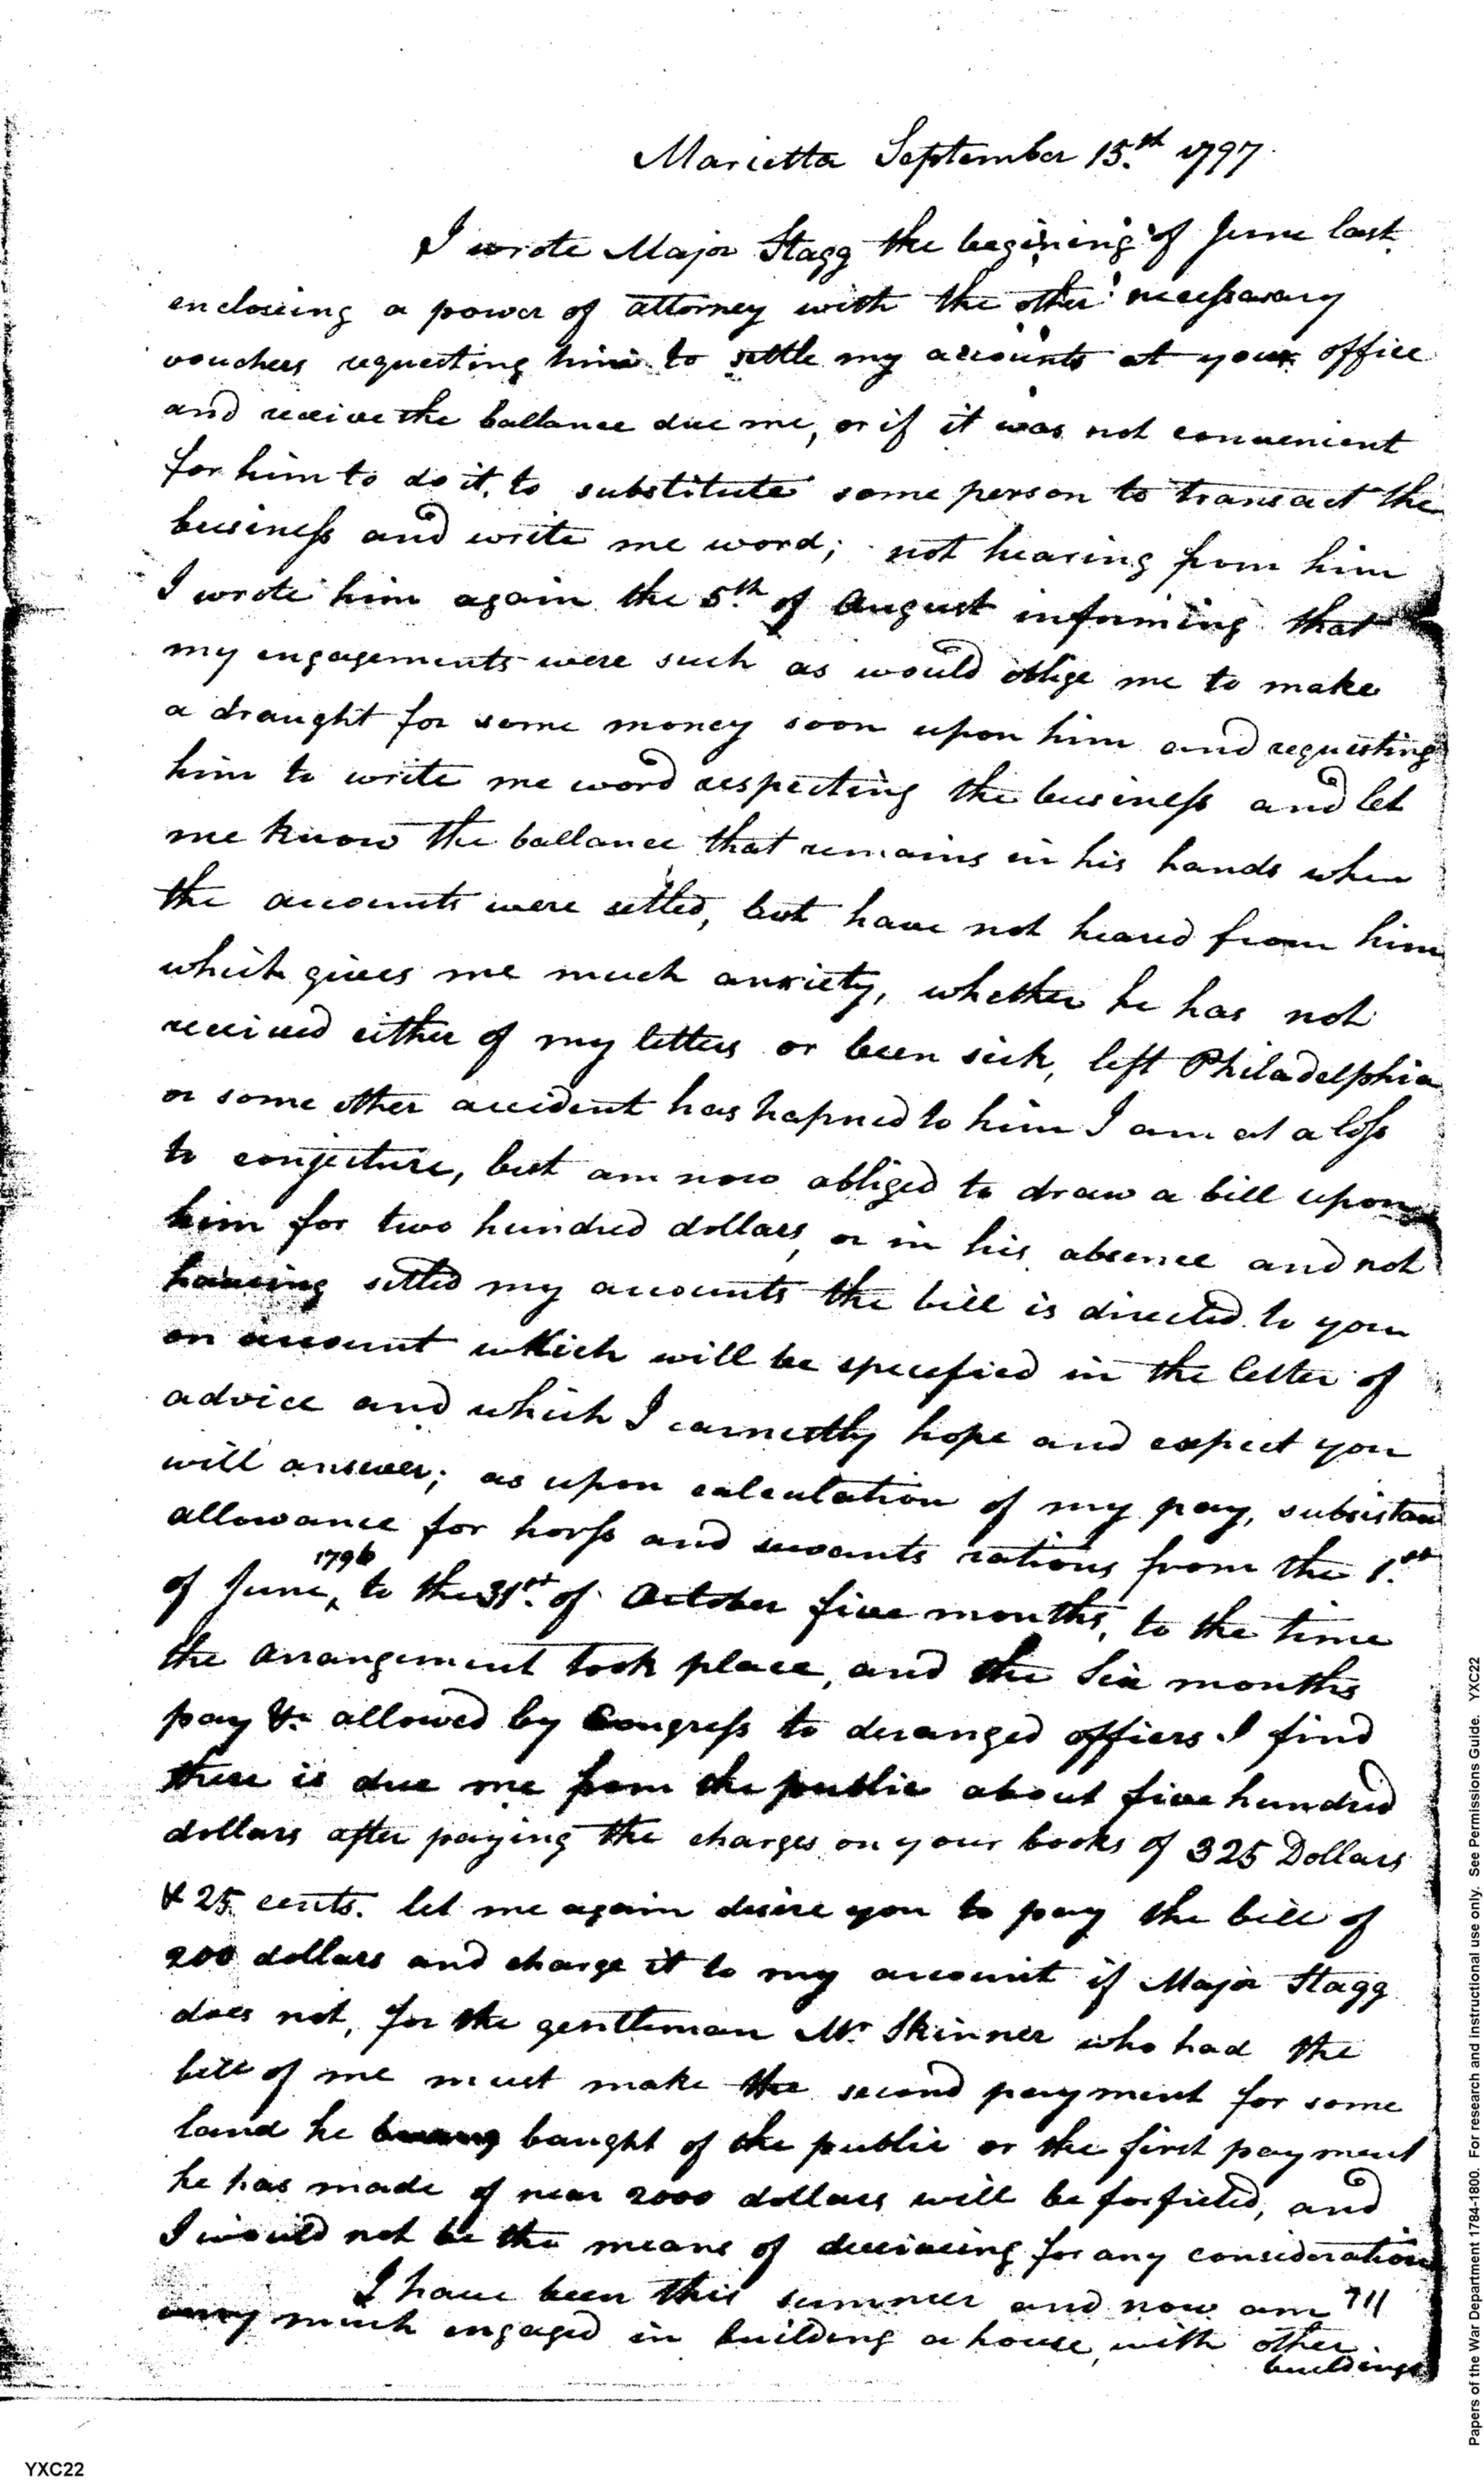 Marietta September 15.th 1797
I wrote Major Stagg the begining of June last
encloseing a power of attorney with the other necessary
vouchers requesting him to settle my accounts at your office
and receive the ballance due me, or if it was not convenient
for him to do it, to substitute some person to transact the
business and write me word; not hearing from him
I wrote him again the 5.th of August informing that
my engagements were such as would oblige me to make
a draught for some money soon upon him and requesting
him to write me word respecting the business and let
me know the ballance that remains in his hands when
the accounts were settled, but have not heard from him
which gives me much anxiety, whether he has not
received either of my letters or been sick, left Philadelphia
or some other accident has hapned to him I am at a loss
to conjecture, but am now obliged to draw a bill upon
him for two hundred dollars, or in his absence and not
haveing settled my accounts the bill is directed to you
on account which will be specefied in the letter of
advice and which I earnestly hope and expect you
will answer; as upon calculation of my pay, subsistan
allowance for horss and servants rations from the 1.st
of June, 1796 to the 31st. of October five months, to the time
the arrangement took place, and the Six months
pay &c allowed by Congress to deranged officers I find
there is due me from the public about five hundred
dollars after paying the charges on your books of 325 Dollars
& 25 cents. let me again desire you to pay the bill of
200 dollars and charge it to my account if Major Stagg
does not, for the gentleman Mr. Skinner who had the
bill of me must make the second payment for some
land he baught of the public or the first payment
he has made of near 2000 dollars will be forfieted, and
I would not be the means of deceiveing for any consideration
I have been this summer and now am
very much engaged in building a house, with other
buildings
711
Papers of the War Department 1784-1800. For research and instructional use only. See Permissions Guide. YXC22
YXC22